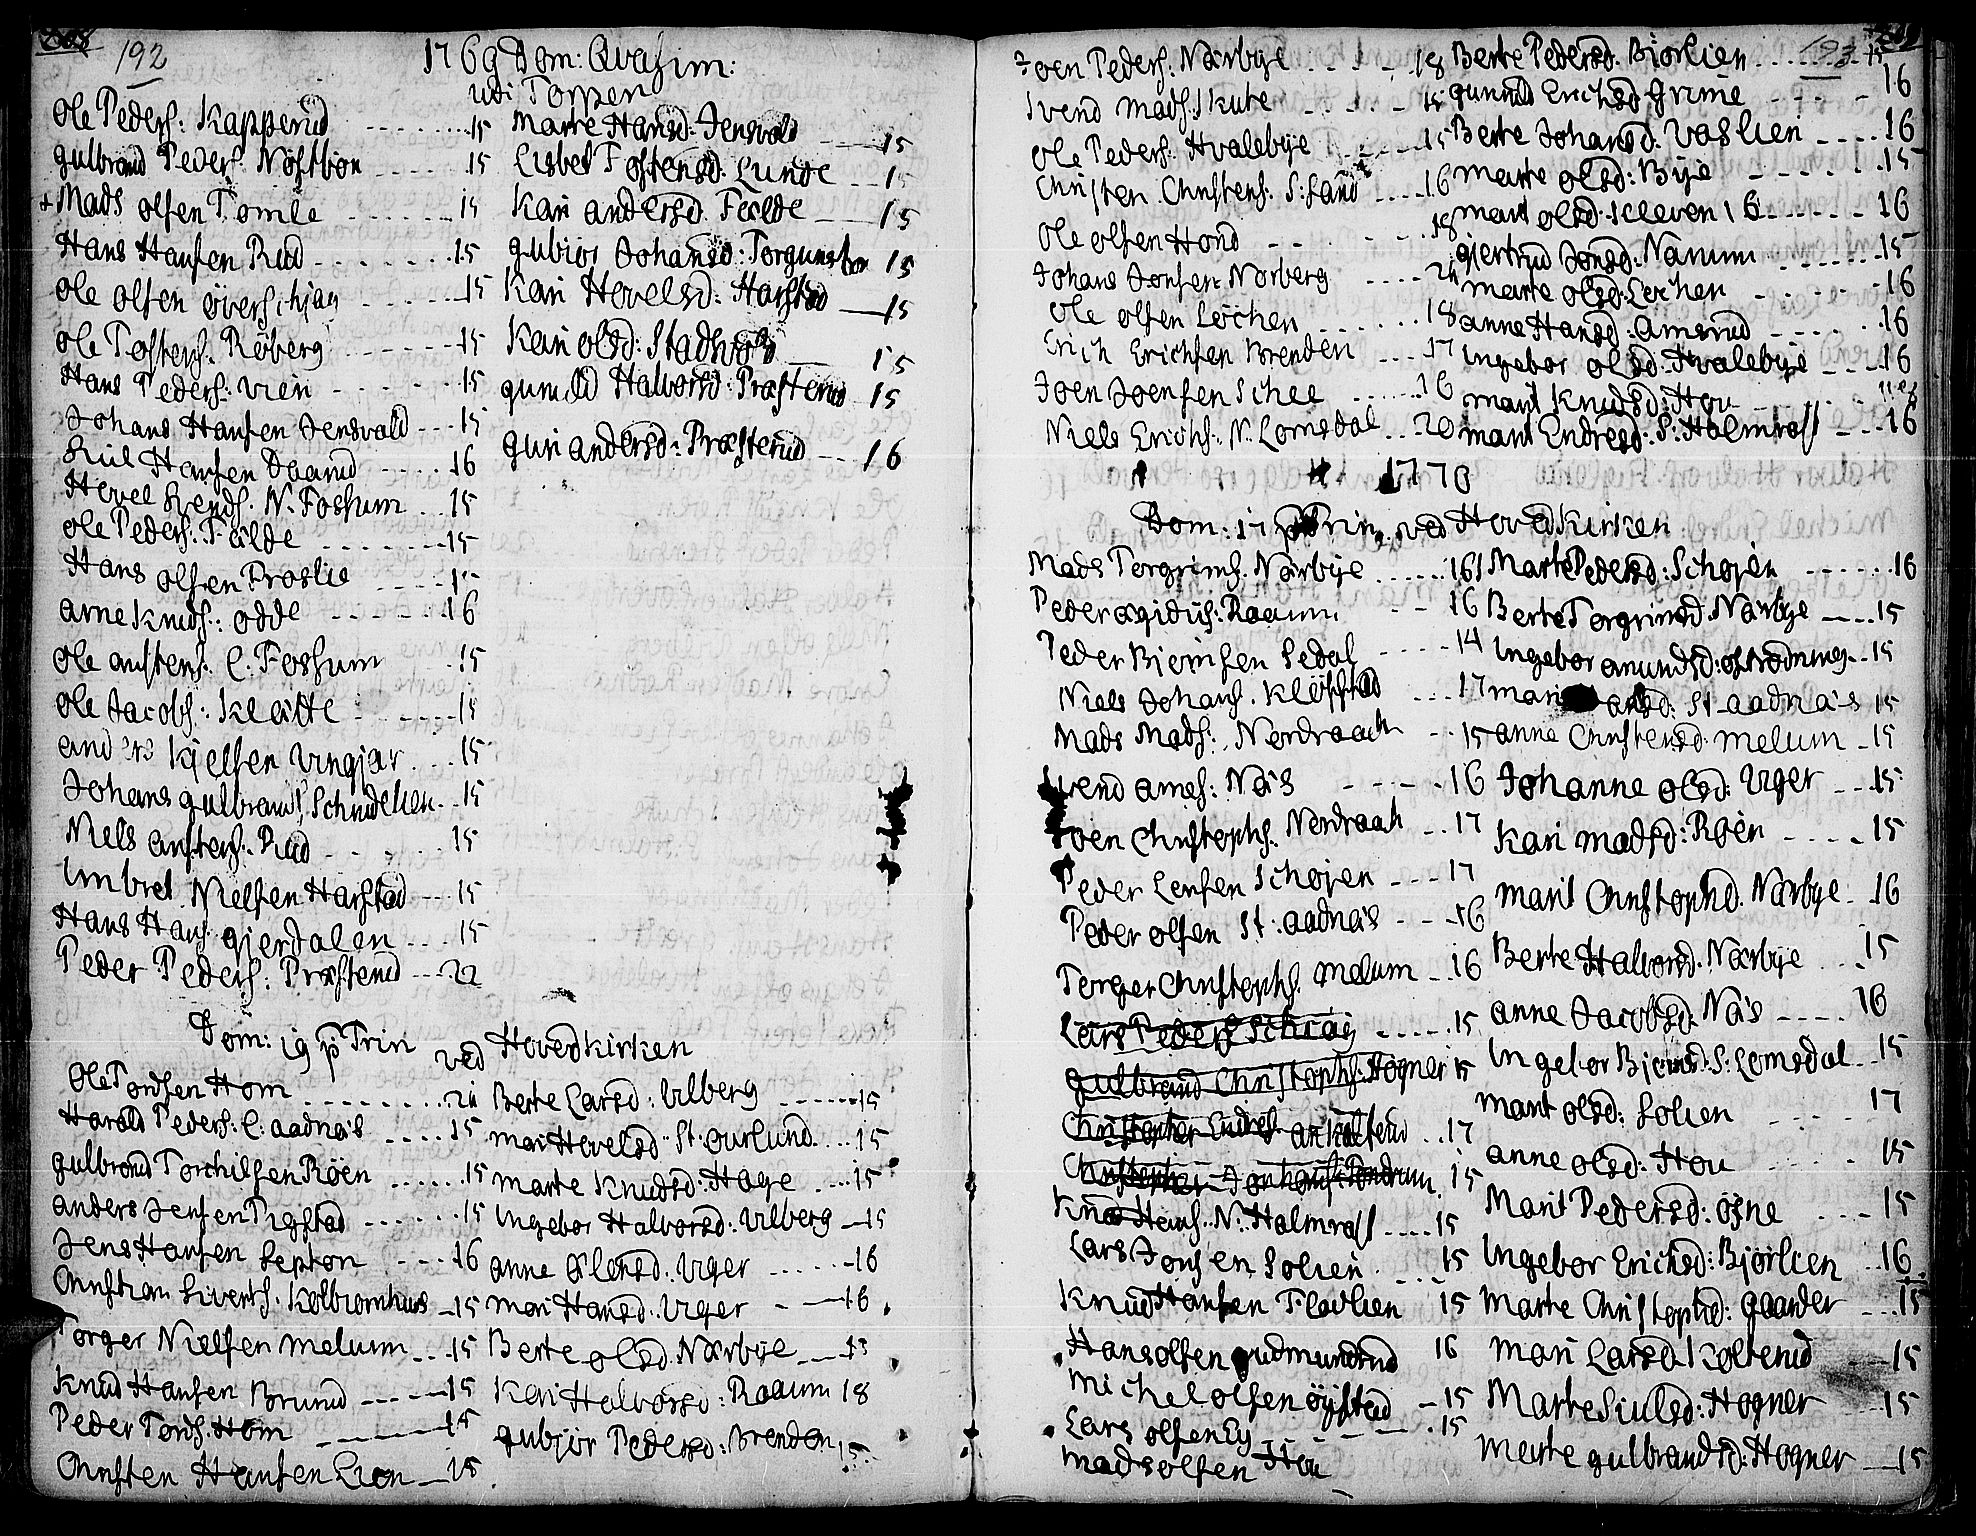 192
1769 Dom: Qvasim:
udi Torpen
Ole Peders: Kapperud - - - - 15
Gulbrand Peders: Nöstbön - - - - 15
+ Mads Olsen Tomle - - - - 15
Hans Hansen Rud - - - - 15
Ole Olsen
Ole Tostens: Röberg - - - - 15
Hans Peders: Vien - - - - 15
Johans Hansen Jensvold - - - 15
Siul Hansen Daarud - - - - 16
Hovel Svends: N. Fossum - - 15
Ole Peders: Fælde - - - - 15
Hans Olsen Roslie - - - - 15
Arne Knuds: Odde - - - - 16
Ole Anstens: L: Fossum - - 15
Ole Jacobs: Klætte - - - - 15
Anders Kjelsen Ungjar - - 15
Johans Gulbrands: Schindelien - - 15
Niels Anstens: Rud - - - - 15
Embret Nielsen Harstad - - - 15
Hans Hans: Gjerdalen - - - 15
Peder Peders: Præsterud - - - 22
Marte Hansd: Jensvold - - 15
Lisbet Tostensd: Lunde - - 15
Kari Andersd: Fælde - - 15
Gubjör Johansd: 15
Kari Hovelsd: Harstad - - 15
Kari Olsd: Stadsvold 15
Gunild Halvorsd: Præsterud 15
Guri Andersd: Præsterud - - 16
Dom: 19 p Trin ved Hovedkirken
Ole Tordsen Hom - - - -
Harald Peders: L: Aadnæs - - - - 15
Gulbrand Torchilsen Röen - - - - 15
Anders Jensen Pigstad - - - - 15
Jens Hansen Lepton - - - 16
Christian Siverts: Kolbiornhuus - 15
Torger Nielsen Melum - - - 15
Knud Hansen Bruud - - - - 15
Peder Tords: Hom - - - - 15
Christen Hansen Lien - - 15
Berte Larsd: Ulberg - - - - 15
Mari Hovelsd: St: Ourlund - - - 15
Marte Knudsd: Hage - - - 15
Ingebor Halvorsd: Ulberg - - 15
Anne Olensd: Uger - - - - 16
Mari Hansd: Uger - - - 16
Berte Olsd: Nærbye - - - 15
Kari Halvorsd: Raaum 18
Gubjör Pedersd: Brenden 15
193
Joen Peders: Nærbye - - - - 18
Svend Mads: Skute - - - - 15
Ole Peders: Hvalebye - - 15
Christen Christens: S: Land - - - 16
Ole Olsen Hond - - - - 18
Johans Jonsen: Norberg - - -
Ole Olsen Löchen - - - - 18
Erich Erichsen Brenden - - - 17
Joen Joensen Schee - - - - 16
Niels Erichs: N. Lomsdal - - 20
Berte Pedersd: Biörlien - - - - 15
Gunild Erichsd Grime - - - - 16
Berte Johansd: Vaslien - - - - 16
Marte Olsd: Bye - - - - 15
Marit Olsd: Kleven 16 - - - - 16
Giertrud Jonsd: Narum - - - - 15
Marte Olsd: Löchen - - - - 16
Anne Hansd: Amsrud - - - - 16
Ingebor Olsd: Hvalebye - - - 16
Marit Knudsd: Hou - - - -
Marit Endresd: S: Halmrast - - - 16
1770
Dom: 17 p Trin, ved Hovedkirken
Mads Torgrims: Nærbye - - - - 16
Peder Ægidiis: Raaum - - 16
Peder Biörnsen Sedal - - - - 14
Niels Johans: Klöfstad - - - 17
Mads Mads: Nordraach - - 15
Svend Arnes: Næs - - - - 16
Joen Christophs: Nordraach - - 17
Peder Lensen Schöyen - - - 17
Peder Olsen St: Aadnæs - - 16
Torger Christophs: Melum - - 16
Lars Peders Schiag - - - - 15
Gulbrand Christophs: Hogner 15
Christopher Endres: - - 17
Christopher 15
Knud Hans: N: Halmrast - - - - 15
Lars Jonsen Solien - - - - 15
Knud Hansen Fladlien 15
Hans Olsen Gudmundrud 16
Michel Olsen Öystad - 15
Lars Olsen Ey - - - - 15
Mads Olsen Hou
Marte Pedersd: Schöyen - - - - 16
Berte Torgrimsd: Nærbye - - - 15
Ingebor Amundsd: - - 15
Mari St: Aadnæs 15
Anne Christensd: Melum - 15
Johanne Olsd: Uger - - - 15
Kari Madsd: Röen - - - - 15
Marit Christophd: Nærbye - 16
Berte Halvorsd: Nærbye - - - 15
Anne Jacobsd: Næs - - - - 16
Ingebor Biörnsd: S: Lomsdal - - 15
Marit Olsd: Solien - - - 17
Anne Olsd: Hou - - - - 15
Marit Pedersd: Ösne - - - 15
Ingebor Erichsd: Björlien - - 16
Marte Christophd: Gaarder - - - 15
Mari Larsd: Kolterud - - 15
Marte Siulsd: Hogner - - 15
Marte Gulbrandsd: Hogner - - 15